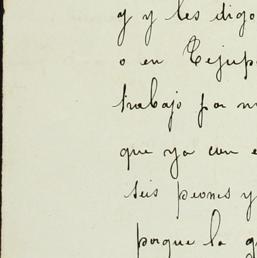 y y les digo
o en Tejup
trabajo por
que ya con
seis peones y
porque la g